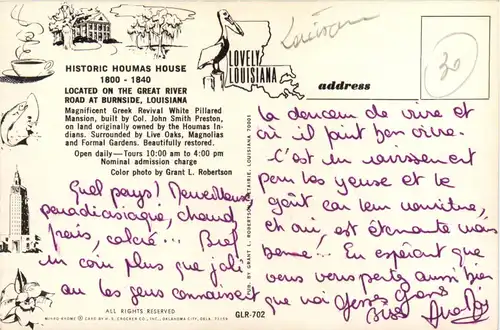 Louisiane
30
LOVELY
LOUISIANA
address
HISTORIC HOUMAS HOUSE
1800 - 1840
LOCATED ON THE GREAT RIVER
ROAD AT BURNSIDE, LOUISIANA
Magnificent Greek Revival White Pillared
Mansion, built by Col. John Smith Preston,
on land originally owned by the Houmas In-
dians. Surrounded by Live Oaks, Magnolias
and Formal Gardens. Beautifully restored.
Open daily—Tours 10:00 am to 4:00 pm
Nominal admission charge
Color photo by Grant L. Robertson
Quel pays! Merveilleux
paradisiaque, chaud
frais, coloré... Bref
un coin plus que joli
où les gens connaissent
la douceur de vivre et
où il fait bon vivre.
C'est un ravissement
pour les yeux et le
goût car leur nourriture,
est étonnante mais
bonne! En espérant que
vous vous portez aussi bien
que nos Gros
Bises
PUB. BY GRANT L. ROBERTSON, METAIRIE, LOUISIANA 70001
ALL RIGHTS RESERVED
MIRRO-KROME ® CARD BY H. S. CROCKER CO., INC., OKLAHOMA CITY, OKLA.
GLR-702